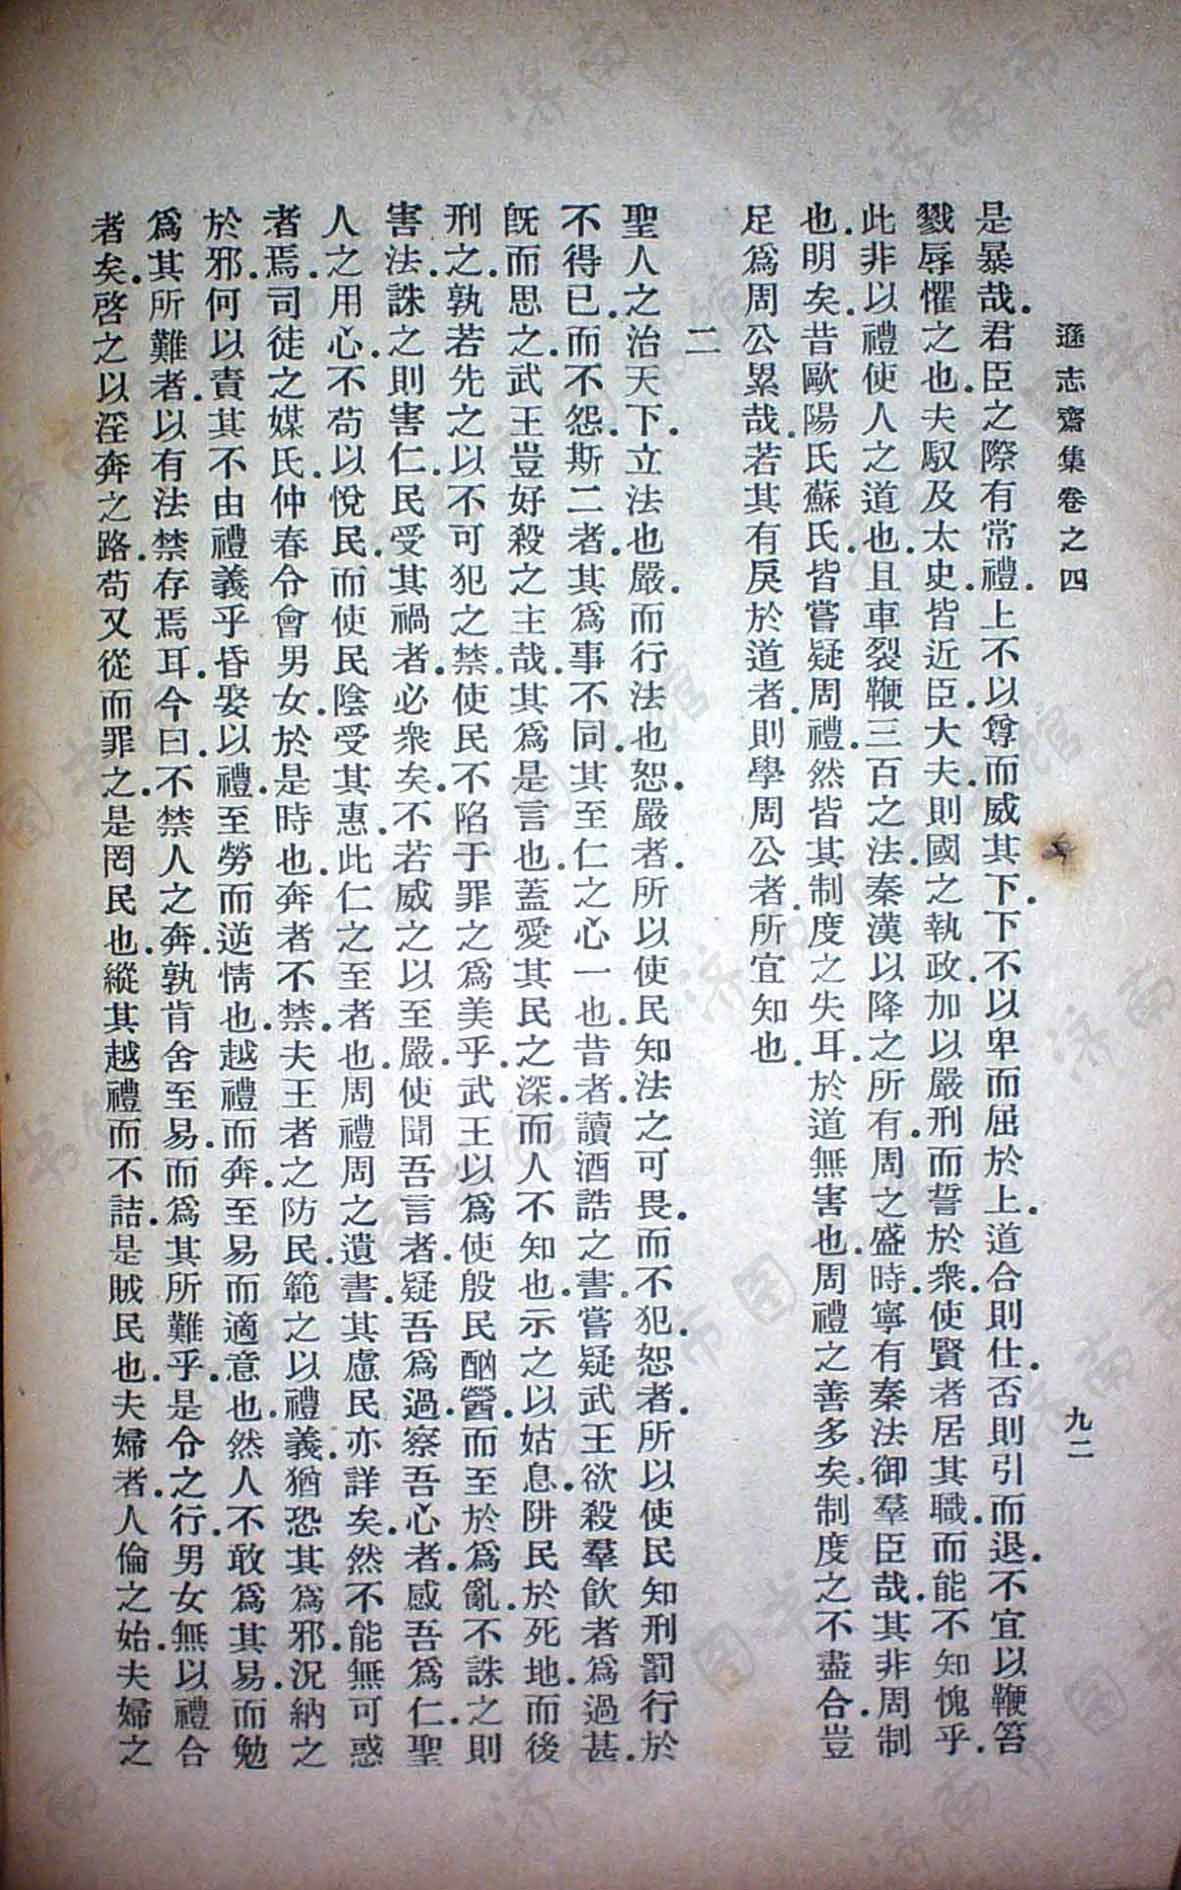 遜志齋集卷之四
九二
是暴哉.君臣之際有常禮.上不以尊而威其下.下不以卑而屈於上.道合則仕.否則引而退.不宜以鞭笞
戮辱懼之也.夫馭及太史.皆近臣.大夫.則國之執政.加以嚴刑而誓於衆.使賢者居其職.而能不知愧乎.
此非以禮使人之道也.且車裂鞭三百之法.秦漢以降之所有.周之盛時.寧有秦法御羣臣哉.其非周制
也.明矣.昔歐陽氏蘇氏.皆嘗疑周禮.然皆其制度之失耳.於道無害也.周禮之善多矣.制度之不盡合.豈
足爲周公累哉.若其有戾於道者.則學周公者.所宜知也.
二
聖人之治天下.立法也嚴.而行法也恕.嚴者.所以使民知法之可畏.而不犯.恕者.所以使民知刑罰行於
不得已.而不怨.斯二者.其爲事不同.其至仁之心一也.昔者.讀酒誥之書.嘗疑武王欲殺羣飲者.爲過甚.
旣而思之.武王豈好殺之主哉.其爲是言也.蓋愛其民之深.而人不知也.示之以姑息.阱民於死地.而後
刑之.孰若先之以不可犯之禁.使民不陷于罪之爲美乎.武王以爲使殷民酗醟.而至於爲亂.不誅之則
害法.誅之則害仁.民受其禍者.必衆矣.不若威之以至嚴.使聞吾言者.疑吾爲過.察吾心者.感吾爲仁.聖
人之用心.不苟以悅民.而使民陰受其惠.此仁之至者也.周禮周之遺書.其慮民亦詳矣.然不能無可惑
者焉.司徒之媒氏.仲春令會男女.於是時也.奔者不禁.夫王者之防民.範之以禮義.猶恐其爲邪.況納之
於邪.何以責其不由禮義乎.昏娶以禮.至勞而逆情也.越禮而奔.至易而適意也.然人不敢爲其易.而勉
爲其所難者.以有法禁存焉耳.今曰.不禁人之奔.孰肯舍至易.而爲其所難乎.是令之行.男女無以禮合
者矣.啓之以淫奔之路.苟又從而罪之.是罔民也.縱其越禮而不詰.是賊民也.夫婦者.人倫之始.夫婦之